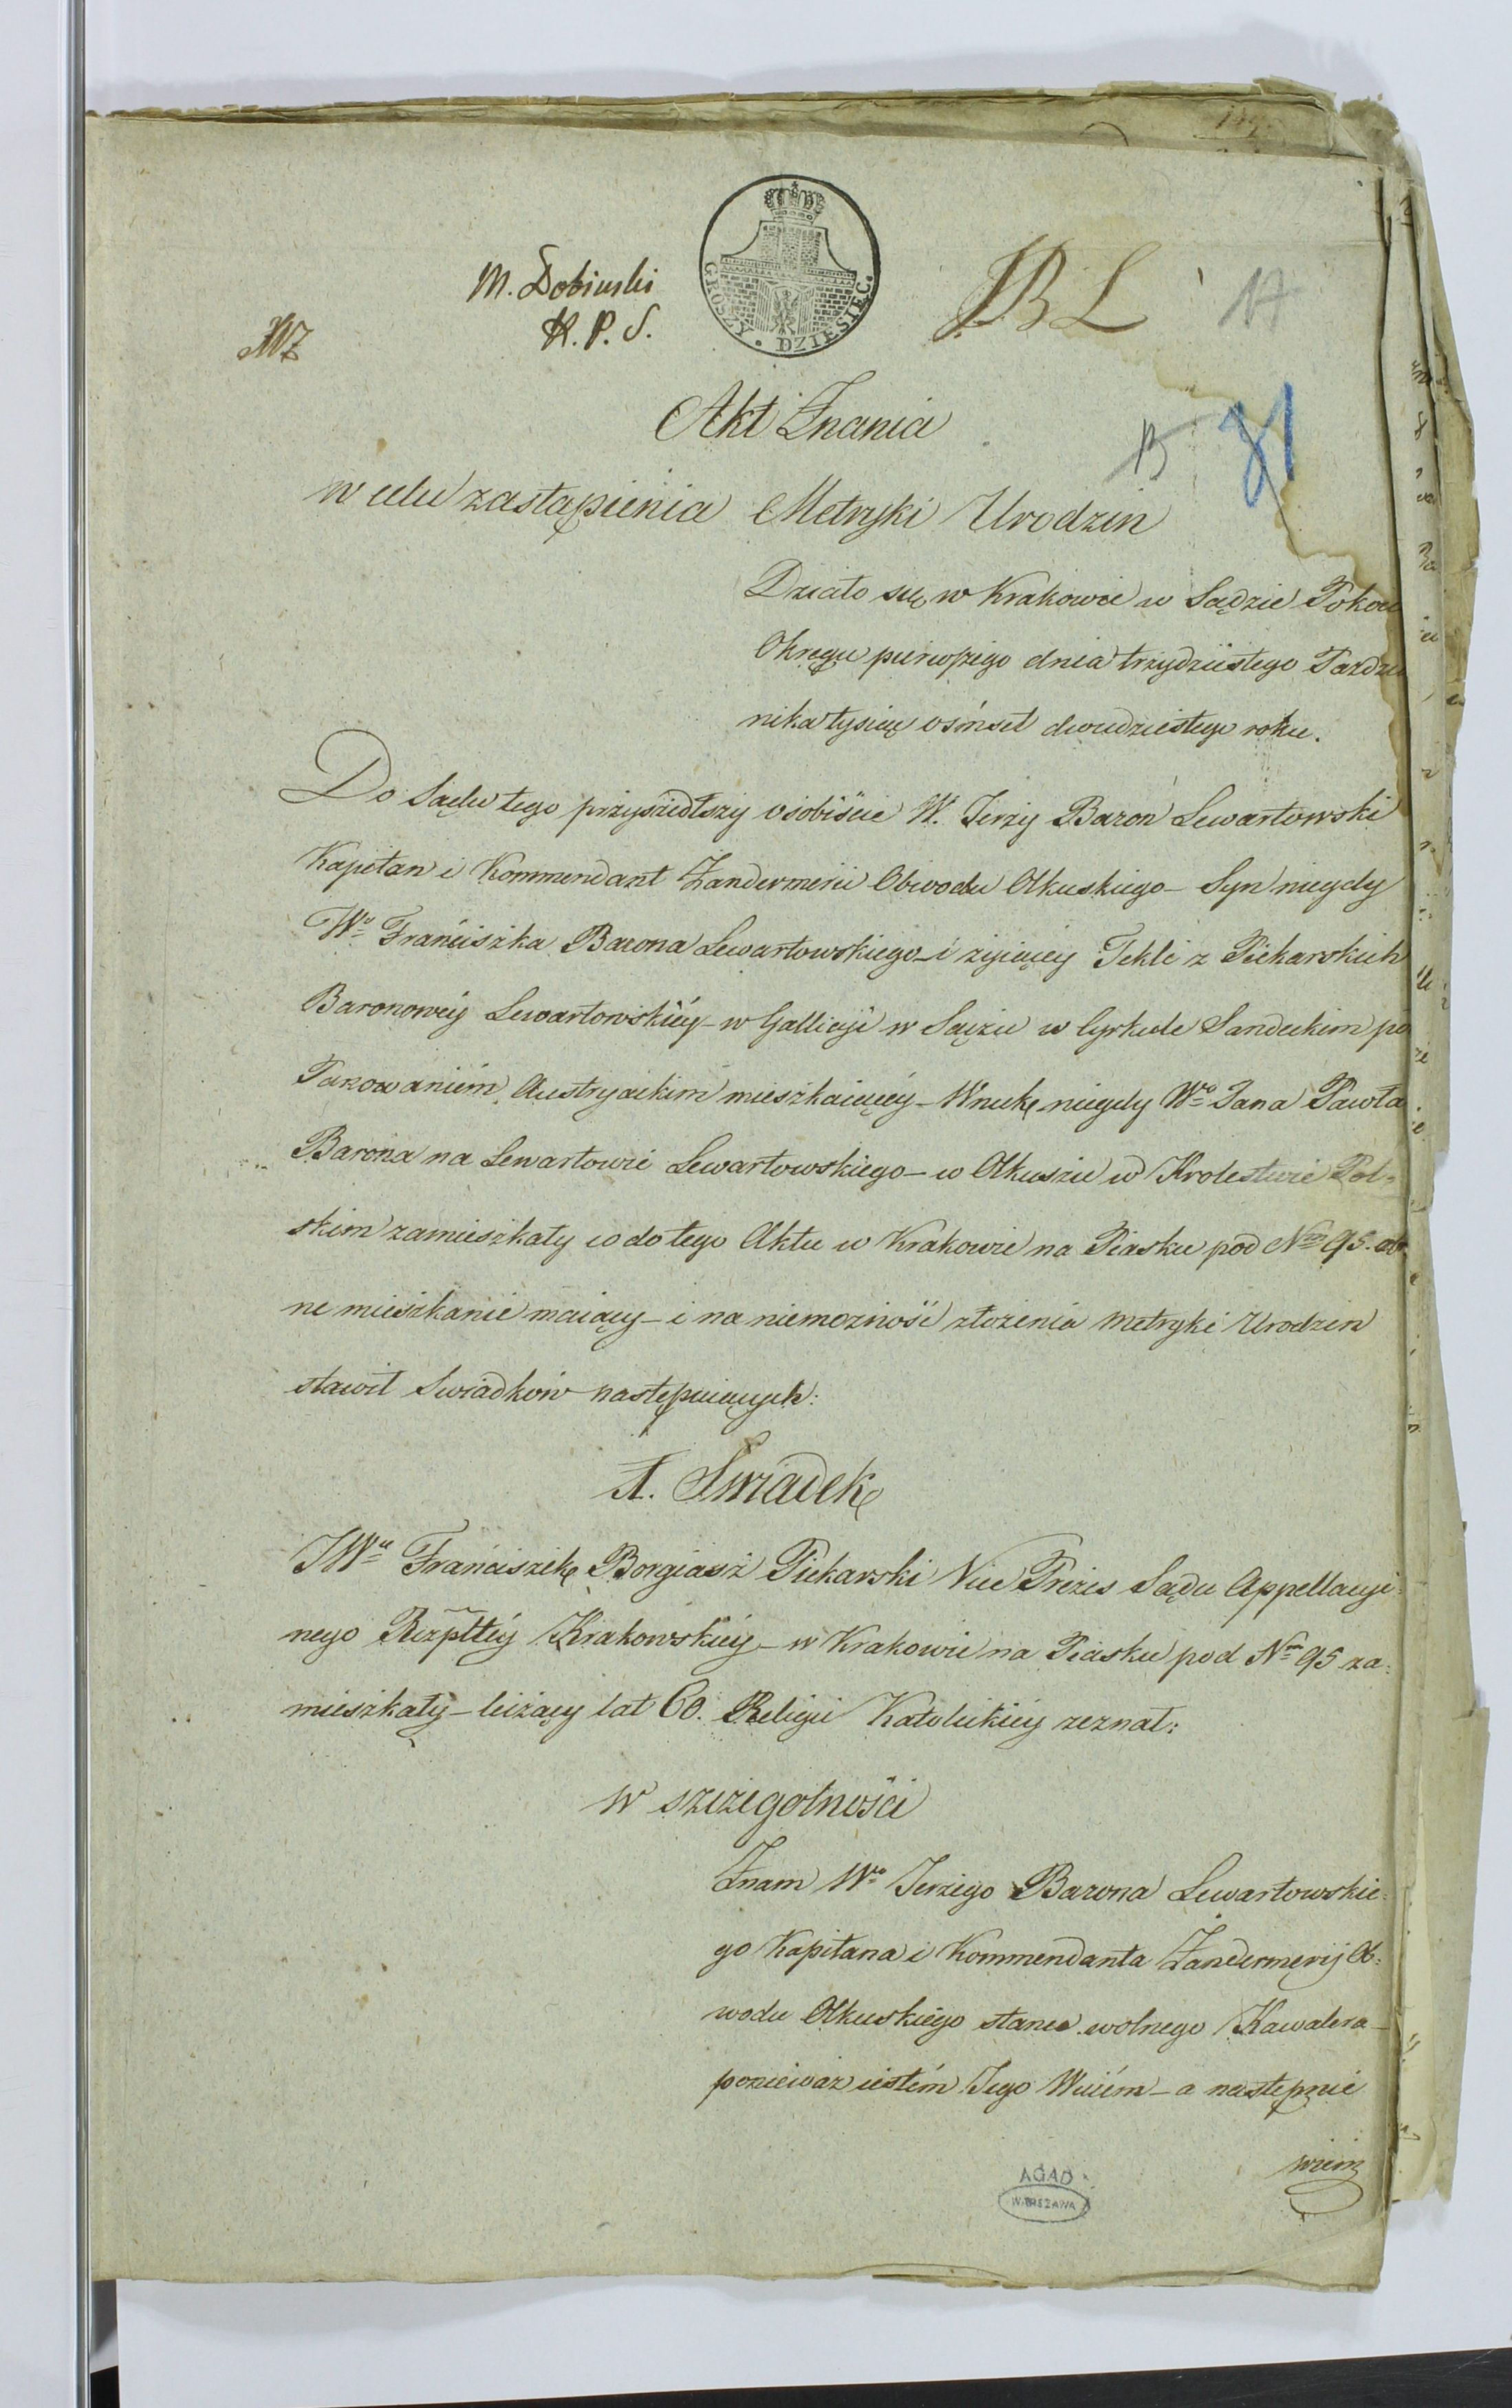 M. Dobinski
K. P. S.
GROSZY DZIESIĘC.
JBL
17
MZ
Akt Znania
13 31
w celu zastąpienia Metryki Urodzin
Działo się w Krakowie w Sądzie Pokoiu
Okręgu pierwszego dnia trzydziestego Pazdzier
nika tysiąc ośmset dwudziestego roku.
Do Sądu tego przyszedłszy osobiście W. Jerzy Baron Lewartowski
Kapitan i Kommendant Żandermerii Obwodu Olkuskiego – Syn niegdy
Wo Franciszka Barona Lewartowskiego – i żyiącey Tekli z Piekarskich
Baronowéy Lewartowskiéy – w Gallicyi w Sączu w Cyrkule Sandeckim po
Panowaniém Austryackim mieszkaiącéy – Wnuk niegdy Wo Jana Pawła
Barona na Lewartowie Lewartowskiego – w Olkuszu w Krolestwie Pol=
skim zamieszkały co do tego Aktu w Krakowie na Piasku pod Nm 95. obra
ne mieszkanie maiący – i na niemożność złożenia Metryki Urodzin
stawił Swiadków następuiących:
1. Swiadek
JWy Franciszek Borgiasz Piekarski Vice Prezes Sądu Appellacyi=
nego Rzpltéy Krakowskiéy – w Krakowie na Piasku pod Nm 95 za=
mieszkały – liczący lat 60. Religii Katolickiéy zeznał:
w szczegolności
Znam Wo Jerzego Barona Lewartowskie=
go Kapitana i Kommendanta Żandermeryi Ob=
wodu Olkuskiego stanu wolnego Kawalera –
ponieważ iestém Jego Wuiém – a następnie
wiem
AGAD
WARSZAWA